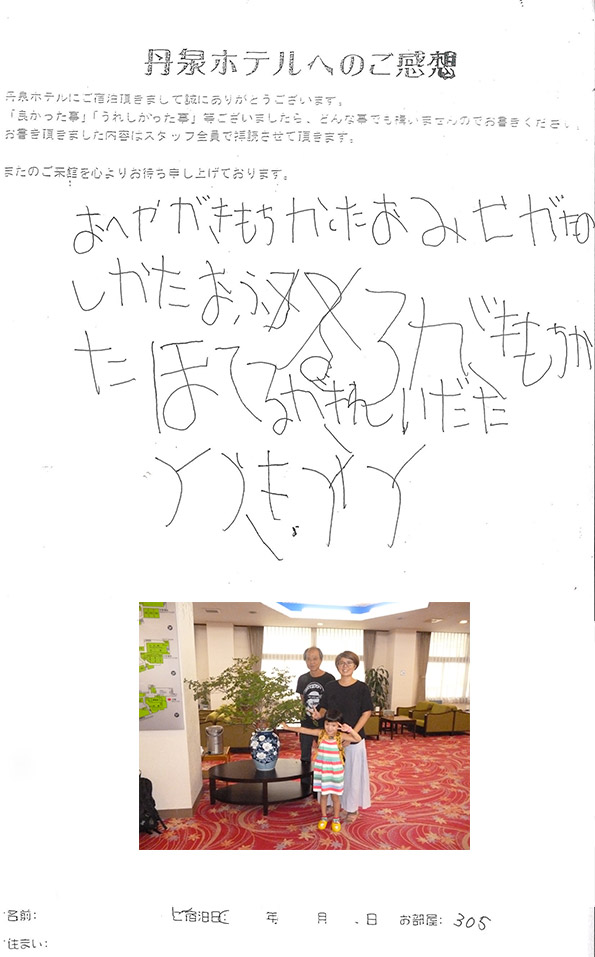 丹泉ホテルへのご感想
丹泉ホテルにご宿泊頂きまして誠にありがとうございます。
「良かった事」「うれしかった事」等ございましたら、どんな事でも構いませんのでお書きください。
お書き頂きました内容はスタッフ全員で拝読させて頂きます。
またのご来館を心よりお待ち申し上げております。
おへやがきもちかたおみせがたの
しかたおふ ろがきもちか
たほてるがきれいだた
名前: ご宿泊日: 年 月 日 お部屋: 305
住まい: